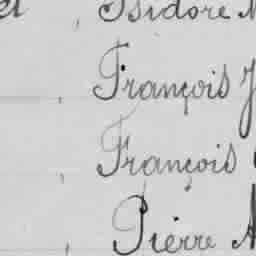 et , Isidore
, François J
, François
, Pierre A